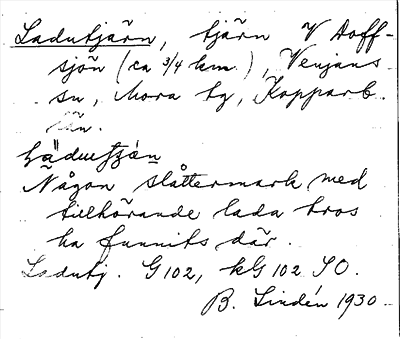 Ladutjärn, tjärn V Hoff-
sjön (ca 3/4 km.), Venjans
sn, Mora tg, Kopparb.
län.
Någon slåttermark med
tillhörande lada tros
ha funnits där.
Ladutj. G 102, kG 102 SO.
B. Lindén 1930